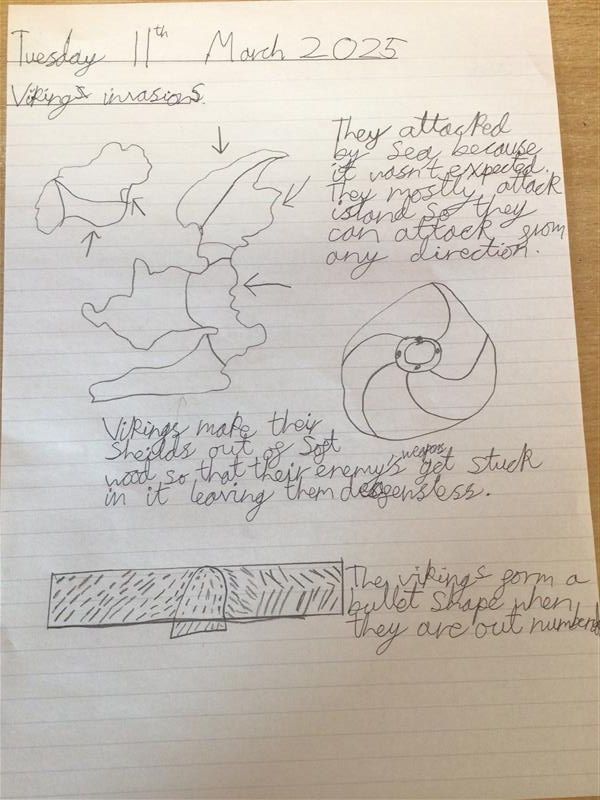 Tuesday 11th March 2025
Vikings invasions.
They attacked
by sea because
it wasn't expected.
They mostly attack
island so they
can attack from
any direction.
Vikings make their
sheilds out of soft
wood so that their enemy's weapons get stuck
in it leaving them defensless.
The vikings form a
bullet shape when
they are out numbered